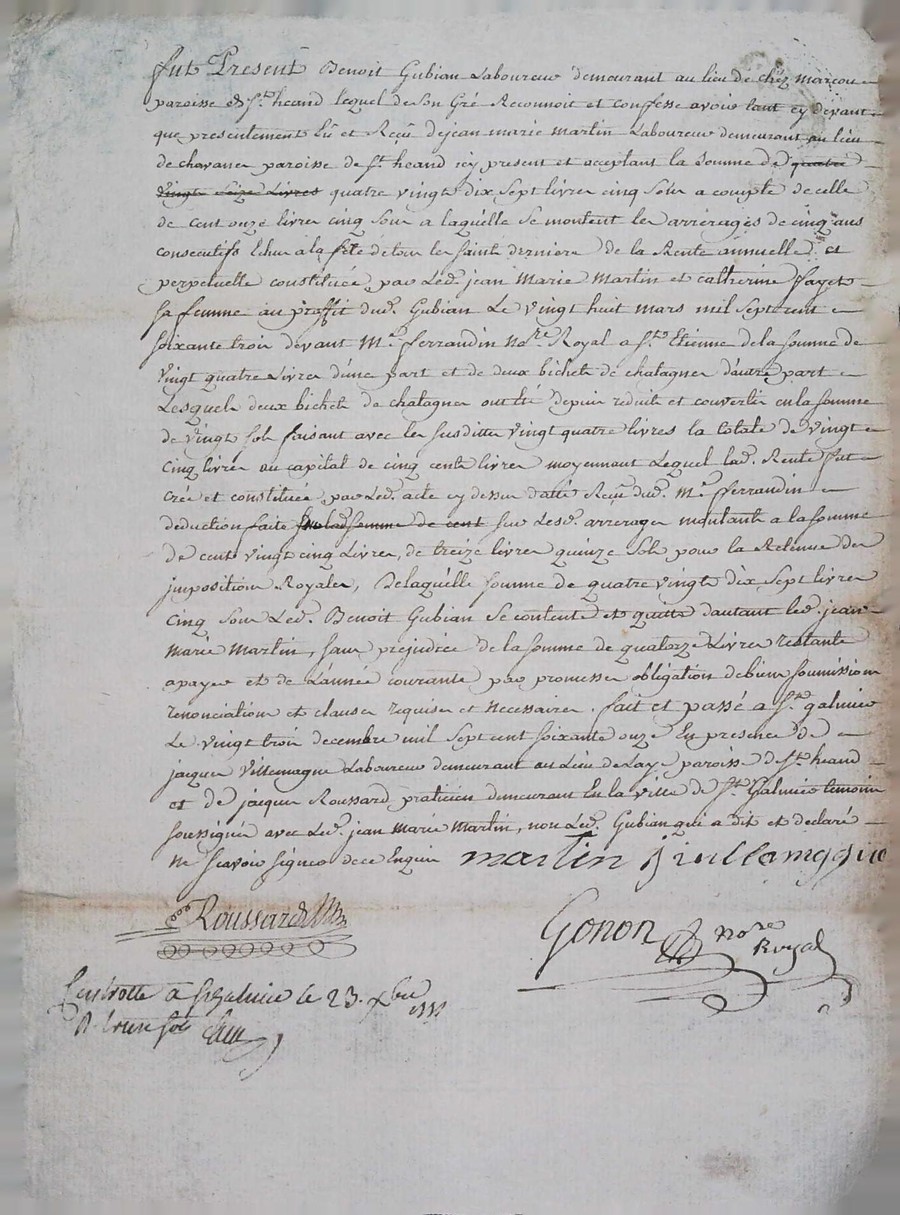 fut Present Benoit Gubian Laboureur demeurant au lieu de chéz marcou
paroisse de St. heand lequel de son Gré Reconnoit et confesse avoir tant cy devant
que presentement Eû et Reçû de jean marie martin Laboureur demeurant au lieu
de chavanes paroisse de St. heand icy present et acceptant la somme de quatre
vingt seize Livres quatre vingt dix sept livres cinq sous a compte de celle
de cent onze livres cinq sous a laquélle se montent les arrérages de cinq ans
consecutifs Echus à la féte de tous les saints derniere de la Rente annuelle et
perpetuelle constituée par Led. jean Marie Martin et catherine fayet
sa femme au proffit dud. Gubian Le vingt huit mars mil sept cent
soixante trois devant Me. fferrandin nore Royal a St. Etienne de la somme de
vingt quatre Livres d'une part et de deux bichets de chatagnes d'autre part
Lesquels deux bichets de chatagnes ont été depuis reduits et convertis en la somme
de vingt sols faisant avec les susdittes vingt quatre livres la totale de vingt
cinq livres au capital de cinq cents livres moyennant Lequel lad. Rente fut
crée et constituée par Led. acte cy dessus datté Reçu dud. Me. fferrandin
deduction faite sur lad. somme de cent sur Lesd. arrerages montants a la somme
de cents vingt cinq Livres, de treize livres quinze sols pour la Retenue des
impositions Royales, De laquélle somme de quatre vingts dix sept livres
cinq sous Led. Benoit Gubian se contente et quitte d'autant led. jean
Marie Martin, sans préjudice de la somme de quatorze Livres restante
a payer et de L'année courante par promesses obligation de biens soumissions
renonciation et clauses requises et necessaires. fait et passé a St. galmier
Le vingt trois decembre mil sept cent soixante onze En presence de
jacques Villemagne Laboureur demeurant au Lieu de Laye paroisse de St. heand
et de jacques Roussard praticien demeurant En la ville de St. Galmier temoins
soussignés avec Led. jean marie Martin, non Led. Gubian qui a dit et declaré
ne scavoir signer de ce Enquis martin j villemagne
Roussard
Gonon nore
Royal
Controlle à St galmier le 23. xbre 1771
R. treize sols